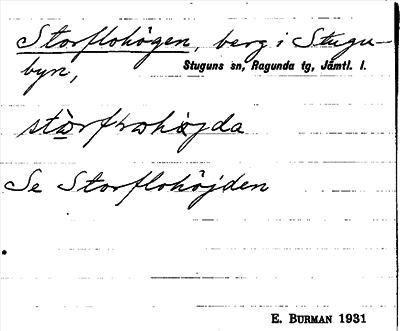 Storflohögen, berg i Stugu-
byn, Stuguns sn, Ragunda tg, Jämtl. l.
Se Storflohöjden
E. BURMAN 1931